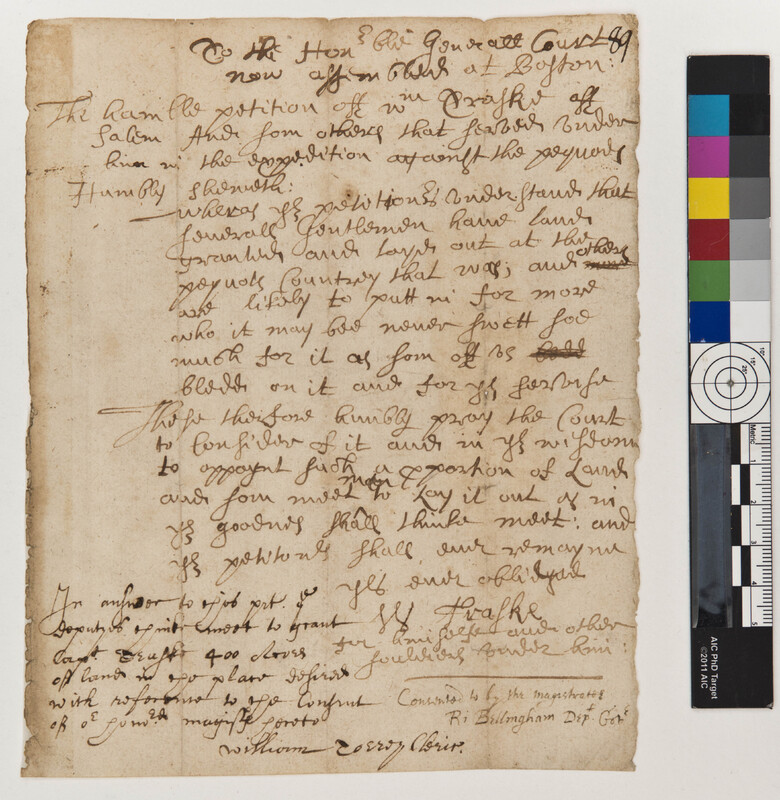 To the Hon^ble Generall Court 89
now assembled at Boston:
The humble petition off W^m Traske off
Salem And som others that served under
him in the expedition against the pequods
Humbly sheweth:
whereas y^r petition^rs understand that
severall Gentlemen have land
granted and layd out at the
pequots Countrey that was; and others
are likely to putt in for more
who it may bee never swett soe
much for it as som off us
bledd on it and for y^r servise
These therfore humbly pray the Court
to Consider of it and in y^r wisdom
to appoynt such a pportion of Land
and som meet men to Lay it out as in
y^r goodnes shall thinke meet: and
y^r petitoners shall ever remayne
y^rs ever obliedged
W Traske
for himselfe and other
souldiers under him:
In answer to this pet. y^e
deputies thinke meet to grant
Capt. Traske 400 Acres
off land in the place desired
with reference to the Consent
of o^r honor^ed magist^s hereto
William Torrey Cleric.
Consented to by the magistrates
Ri Bellingham Dep^t Gov^r
10°
15°
25°
Metric
1
2
3
4
5
AIC PhD Target
©2011 AIC